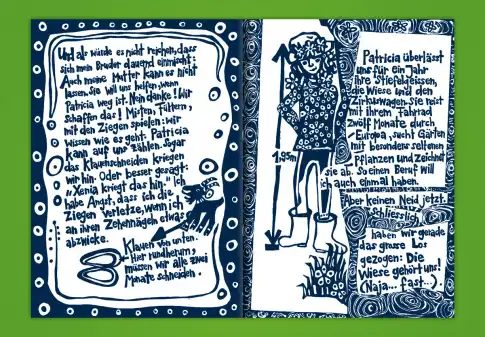 Und als würde es nicht reichen, dass
sich mein Bruder dauernd einmischt:
Auch meine Mutter kann es nicht
lassen. Sie will uns helfen, wenn
Patricia weg ist. Nein danke! Wir
schaffen das! Misten, Füttern,
mit den Ziegen spielen: wir
wissen wie es geht. Patricia
kann auf uns zählen. Sogar
das Klauenschneiden kriegen
wir hin. Oder besser gesagt:
Xenia kriegt das hin. Ich
habe Angst, dass ich die
Ziegen verletze, wenn ich
an ihren Zehennägeln etwas
abzwicke.
Klauen von unten.
Hier rundherum,
müssen wir alle zwei
Monate schneiden.
1,95m
Patricia überlässt
uns für ein Jahr
ihre Stiefelgeissen,
die Wiese und den
Zirkuswagen. Sie reist
mit ihrem Fahrrad
zwölf Monate durch
Europa, sucht Gärten
mit besonders seltenen
Pflanzen und zeichnet
sie ab. So einen Beruf will
ich auch einmal haben.
Aber keinen Neid jetzt.
Schliesslich
haben wir gerade
das grosse Los
gezogen: Die
Wiese gehört uns!
(Naja... fast...)